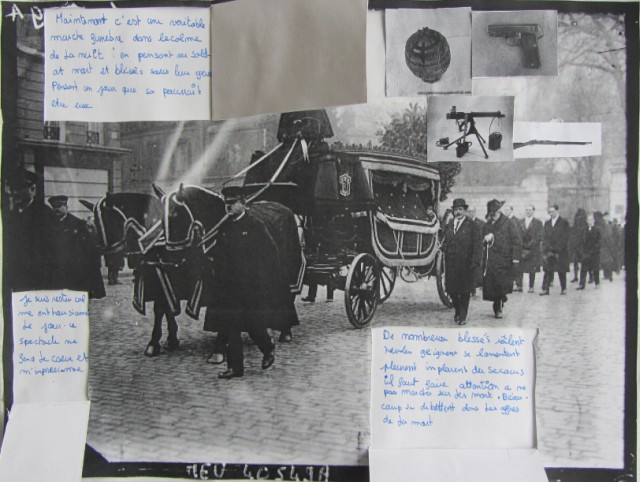 Maintenant c'est une veritable
marche funebre dans le calme
de la nuit : en pensant au sold-
at mort et blessés sous leur yeux
Pensant un jour que sa pourrait
etre eux
Je suis rester cal
me enthousiasme
Le jour ce
spectacle me
fend le coeur et
m'impressionne
De nombreux blessés râlent
geignent se lamentent
pleurent implorent du secours
il faut faire attention a ne
pas marcher sur les mort. Beau-
coup se debattent dans les affres
de la mort
MEU 40543A